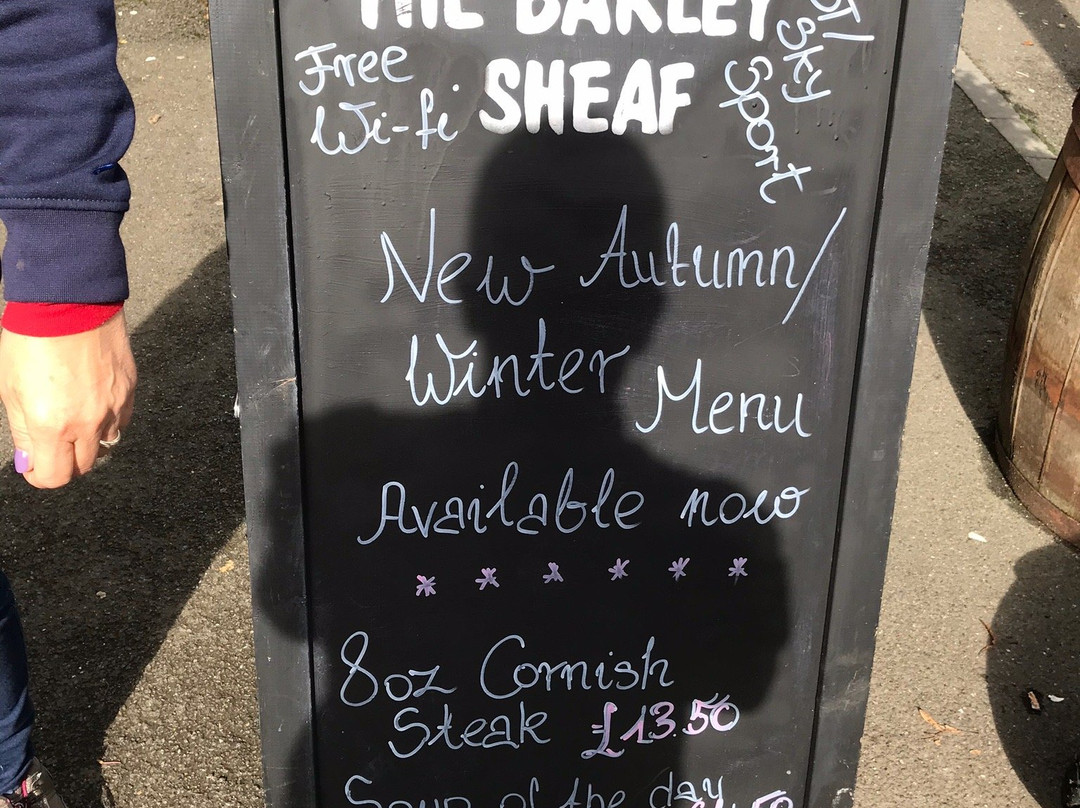 THE BARLEY
SHEAF
Free
Wi-fi
BT/
Sky
Sport
New Autumn/
Winter Menu
Available now
* * * * * *
8oz Cornish
Steak £13.50
Soup of the day